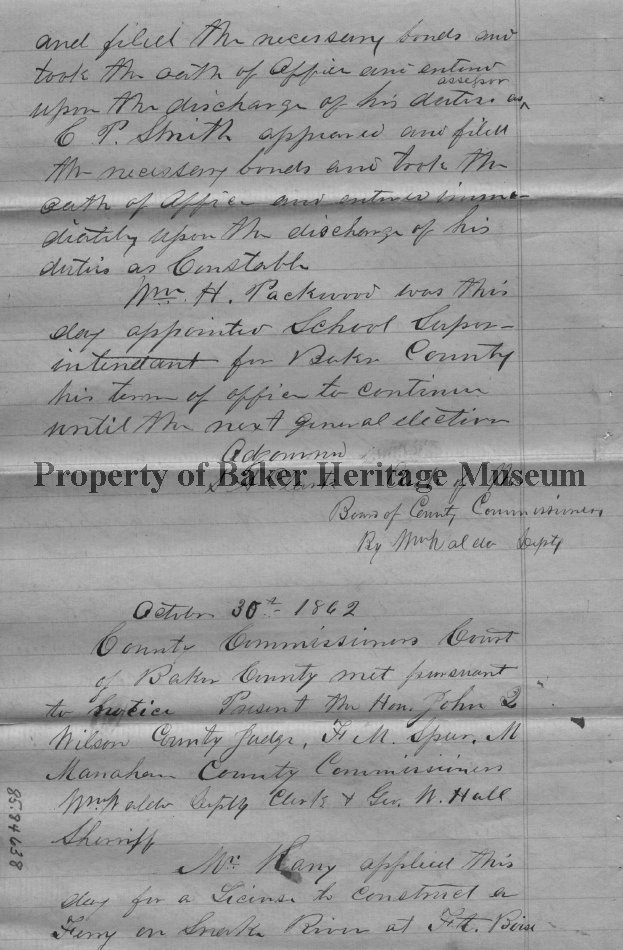 and filed the necessary bonds and
took the oath of Office and entered
assessor
upon the discharge of his duties as ^
E P. Smith appeared and filed
the necessary bonds and took the
oath of Office and entered imme-
diatily upon the discharge of his
duties as Constable
Wm. H. Packwood was this
day appointed School Super-
intendant for Baker County
his term of office to continue
until the next general election
Adjourned
Property of Baker Heritage Museum
Clerk of the
Board of County Commissioners
By Wm Waldo Depty
October 30th 1862
County Commissioners Court
of Baker County met pursuant
to Notice Present the Hon. John Q
Wilson County Judge, F. M. Spur, M
Manahan County Commissioners
Wm Waldo Depty Clerk & Geo. W. Hall
Sherriff
Mr. applied this
day for a License to construct a
Ferry on Snake River at Ft. Boise
85.94.638